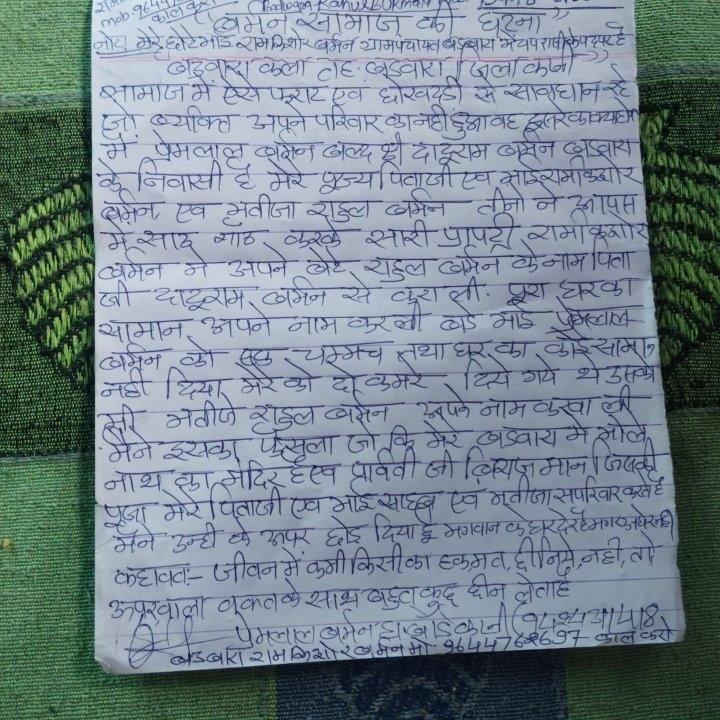 बर्मन समाज की घटना
नोट मेरे छोटे भाई रामकिशोर बर्मन ग्राम पंचायत बडवारा में चपरासी के पद पर है
बडवारा कला तह. बडवारा जिला कटनी
सामाज में ऐसे फ्राट एवं धोखाधड़ी से सावधान रहे
जो व्यक्ति अपने परिवार का नहीं हुआ वह दूसरे का क्या होगा
में प्रेमलाल बर्मन बल्द श्री दादूराम बर्मन बडवारा
के निवासी है मेरे पूज्य पिताजी एवं भाई रामकिशोर
बर्मन, एवं भतीजा राहुल बर्मन तीनो ने आपस
में साठ गाठ करके सारी प्रापर्टी रामकिशोर
बर्मन ने अपने बेटे राहुल बर्मन के नाम पिता
जी दादूराम बर्मन से करा ली. पूरा घर का
सामान अपने नाम कर ली बडे भाई प्रेमलाल
बर्मन को एक चम्मच तथा घर का कोई सामान
नही दिया मेरे को दो कमरे दिये गये थे उसको
भी भतीजे राहुल बर्मन अपने नाम करवा ली
मैंने इसका फैसला जो कि मेरे बडवारा में भोले
नाथ का मंदिर है एवं पार्वती जी विराजमान जिसकी
पूजा मेरे पिताजी एवं भाई साहब एवं भतीजा सपरिवार करते है
मैंने उन्ही के ऊपर छोड़ दिया है भगवान के घर देर है मगर अंधेर नही
कहावत:- जीवन में कभी किसी का हक मत, छीनिये, नही, तो
ऊपरवाला वक्त के साथ बहुत कुछ छीन लेता है
प्रेमलाल बर्मन
बडवारा रामकिशोर बर्मन मो. काल करो